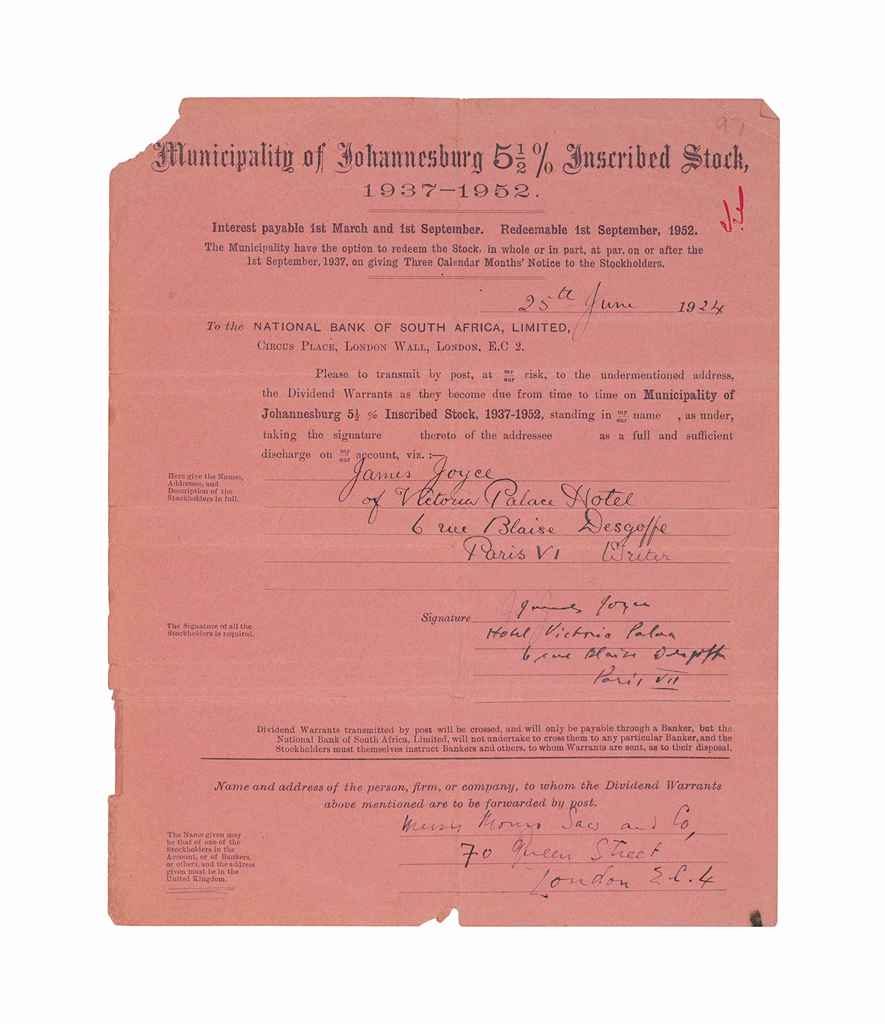 97
Municipality of Johannesburg 5½% Inscribed Stock,
1937—1952.
Interest payable 1st March and 1st September. Redeemable 1st September, 1952.
The Municipality have the option to redeem the Stock, in whole or in part, at par, on or after the
1st September, 1937, on giving Three Calendar Months' Notice to the Stockholders.
25th June 1924
To the NATIONAL BANK OF SOUTH AFRICA, LIMITED,
CIRCUS PLACE, LONDON WALL, LONDON, E.C 2.
Please to transmit by post, at my/our risk, to the undermentioned address,
the Dividend Warrants as they become due from time to time on Municipality of
Johannesburg 5½ % Inscribed Stock, 1937-1952, standing in my/our name , as under,
taking the signature thereto of the addressee as a full and sufficient
discharge on my/our account, viz. :—
Here give the Names,
Addresses, and
Description of the
Stockholders in full.
James Joyce
of Victoria Palace Hotel
6 rue Blaise Desgoffe
Paris VI Writer
The Signature of all the
Stockholders is required.
Signature James Joyce
Hotel Victoria Palace
6 rue Blaise Desgoffe
Paris VII
Dividend Warrants transmitted by post will be crossed, and will only be payable through a Banker, but the
National Bank of South Africa, Limited, will not undertake to cross them to any particular Banker, and the
Stockholders must themselves instruct Bankers and others, to whom Warrants are sent, as to their disposal.
Name and address of the person, firm, or company, to whom the Dividend Warrants
above mentioned are to be forwarded by post.
The Name given may
be that of one of the
Stockholders in the
Account, or of Bankers,
or others, and the address
given must be in the
United Kingdom.
Messrs Monro Saw and Co,
70 Queen Street
London E.C.4